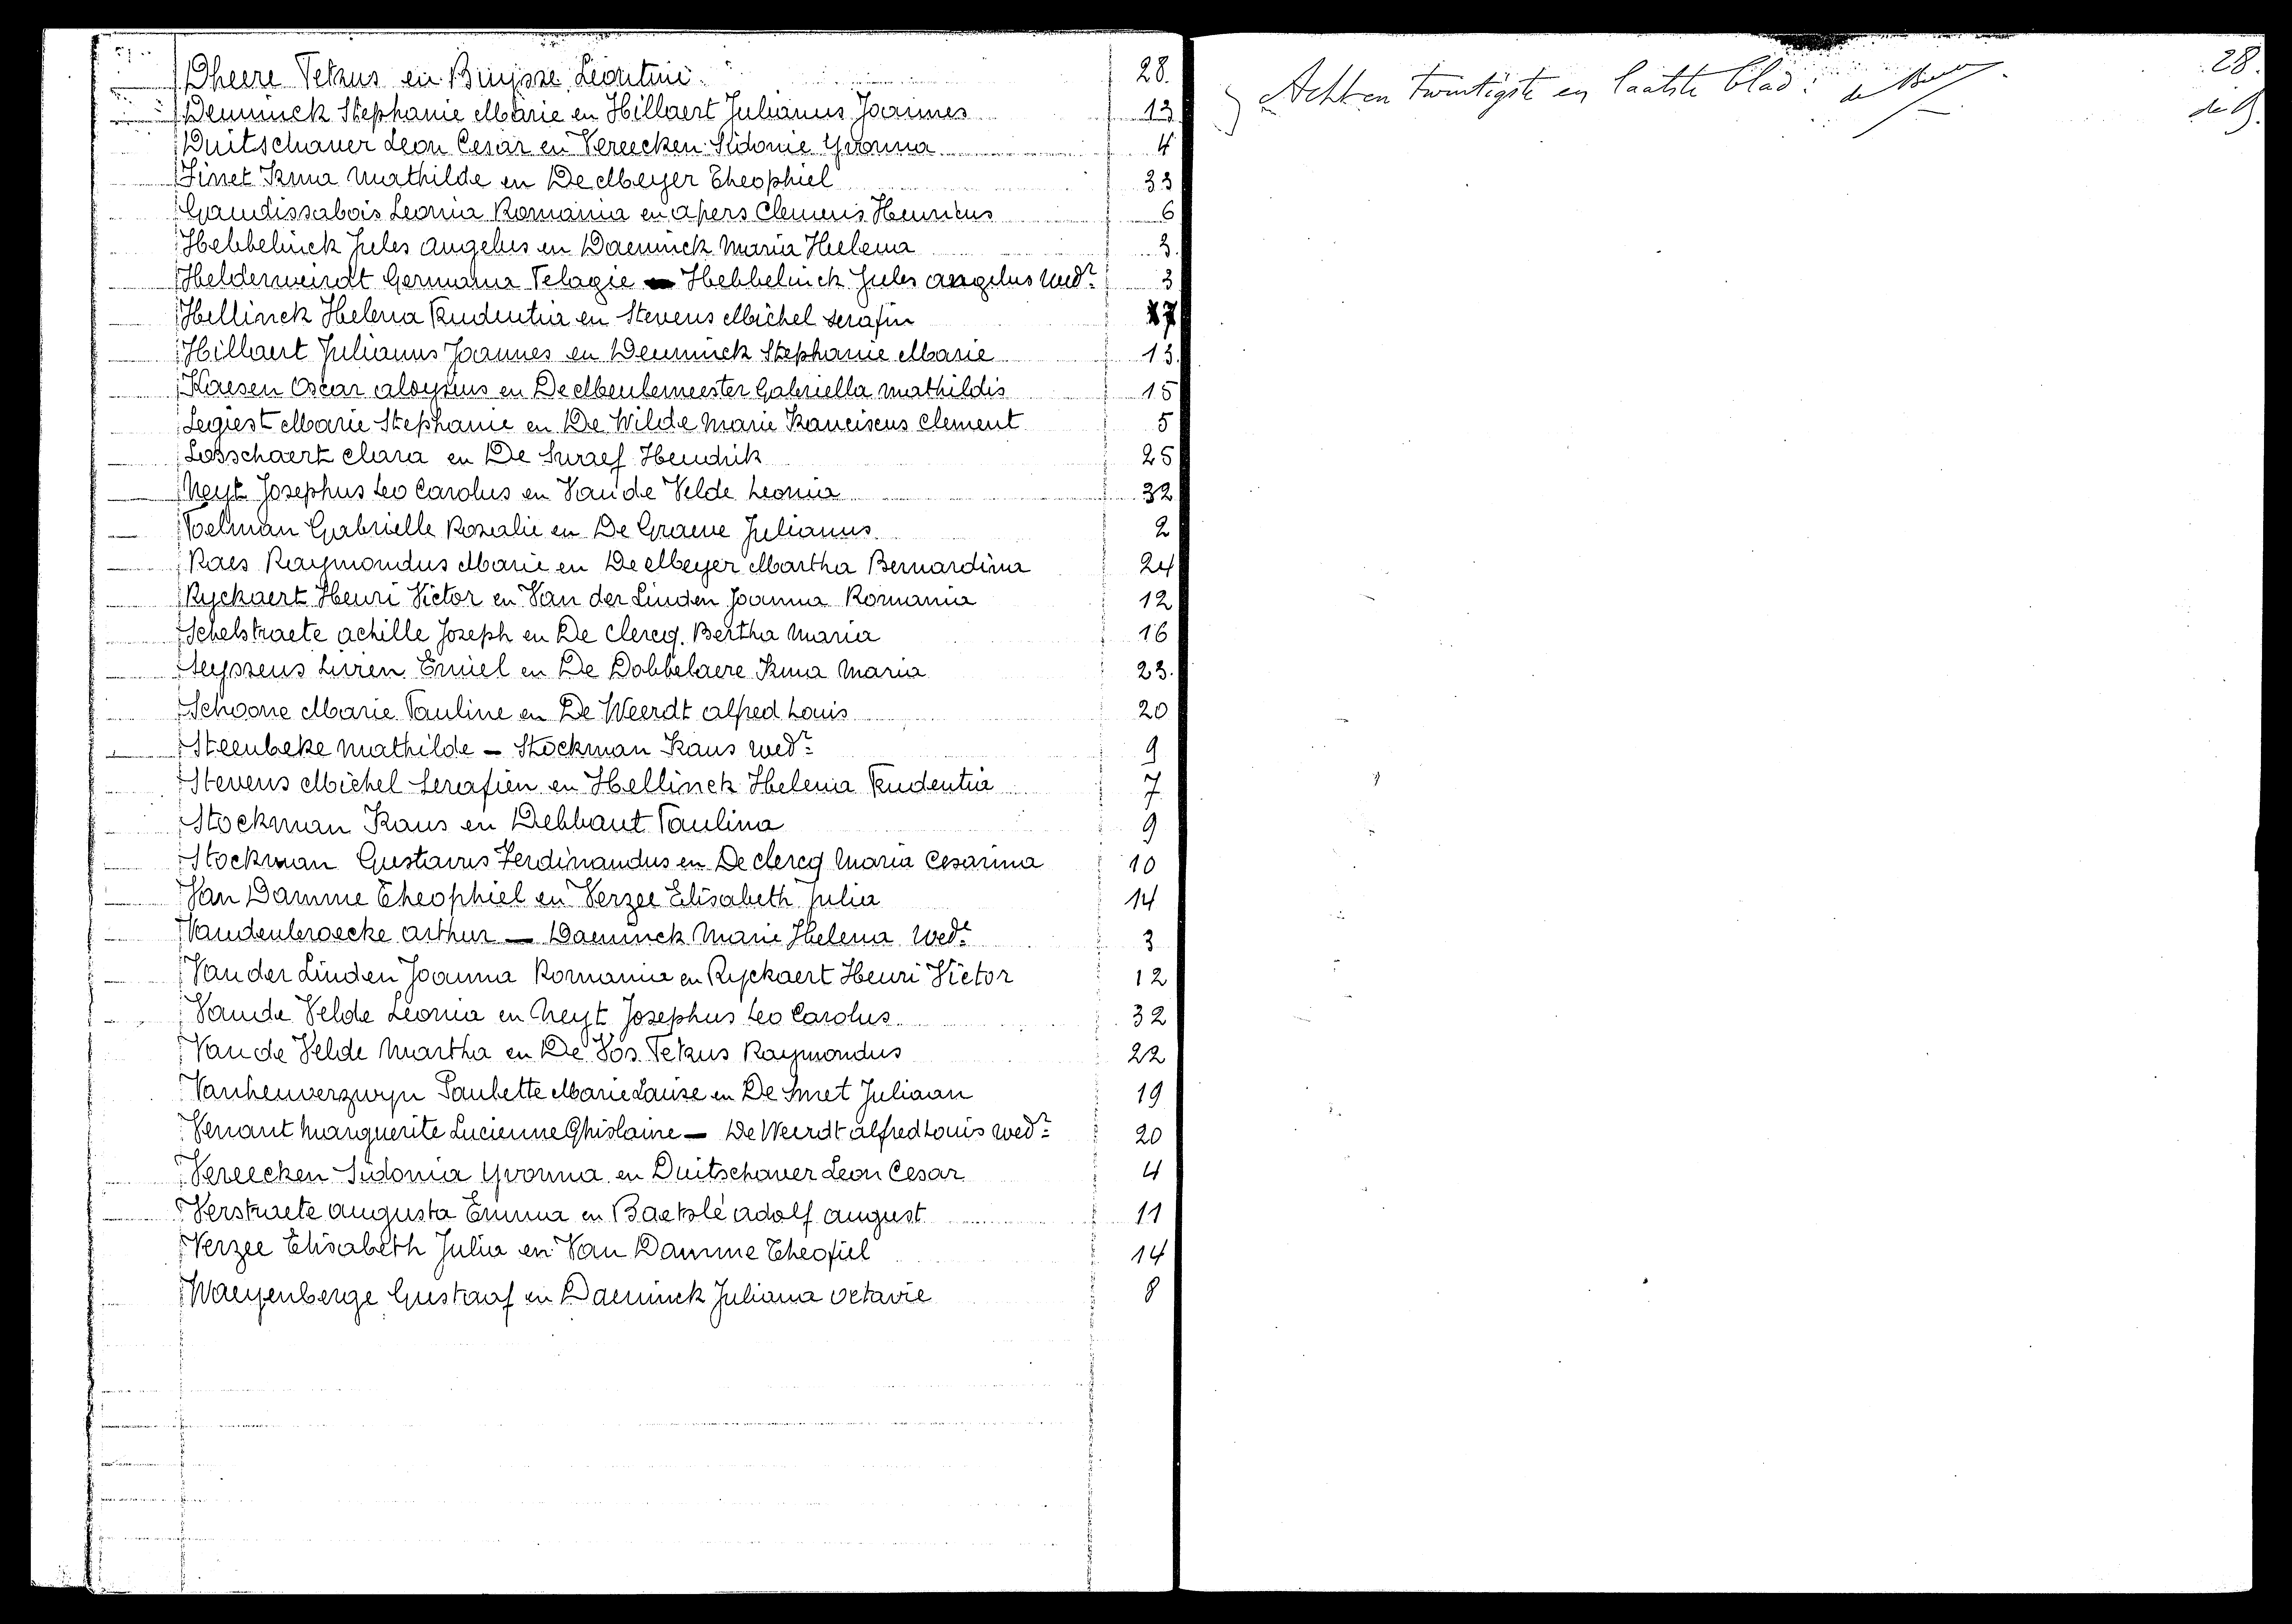 Dheere Petrus en Buysse Leontine 28.
Deuninck Stephanie Marie en Hillaert Julianus Joannes 13
Duitschaver Leon Cesar en Vereecken Sidonie Yvonna 4
Finet Irma Mathilde en De Meyer Theophiel 33
Gaudissabois Leonia Romania en Apers Clemens Henricus 6
Hebbelinck Jules Angelus en Daeninck Maria Helena 3.
Helderweirdt Germana Pelagie — Hebbelinck Jules Angelus wedr 3
Hellinck Helena Prudentia en Stevens Michel Serafin 7
Hillaert Julianus Joannes en Deuninck Stephanie Marie 13.
Kaesen Oscar Aloysius en De Meulemeester Gabriella Mathildis 15
Legiest Marie Stephanie en De Wilde Marie Franciscus Clement 5
Losschaert Clara en De Smaef Hendrik 25
Neyt Josephus Leo Carolus en Van de Velde Leonia 32
Poelman Gabrielle Rosalie en De Graeve Julianus 2
Raes Raymondus Marie en De Meyer Martha Bernardina 24
Ryckaert Henri Victor en Van der Linden Joanna Romania 12
Schelstraete Achille Joseph en De Clercq Bertha Maria 16
Seyssens Emiel en De Dobbelaere Irma Maria 23.
Schoone Marie Pauline en De Weerdt Alfred Louis 20
Steenbeke Mathilde — Stockman Frans wedr 9
Stevens Michel Serafien en Hellinck Helena Prudentia 7
Stockman Frans en Debbaut Paulina 9
Stockman Gustavus Ferdinandus en De Clercq Maria Cesarina 10
Van Damme Theophiel en Verzee Elisabeth Julia 14
Vandenbroecke Arthur — Daeninck Marie Helena wede 3
Van der Linden Joanna Romania en Ryckaert Henri Victor 12
Van de Velde Leonia en Neyt Josephus Leo Carolus 32
Van de Velde Martha en De Vos Petrus Raymondus 22
Vanheuverzwyn Paulette Marie Louise en De Smet Juliaan 19
Venant Marguerite Lucienne Ghislaine — De Weerdt Alfred Louis wedr 20
Vereecken Sidonia Yvonna en Duitschaver Leon Cesar 4
Verstraete Augusta Emma en Baetslé Adolf August 11
Verzee Elisabeth Julia en Van Damme Theofiel 14
Waeyenberge Gustaaf en Daeninck Juliana Octavie 8
28.
Acht en twintigste en laatste blad: